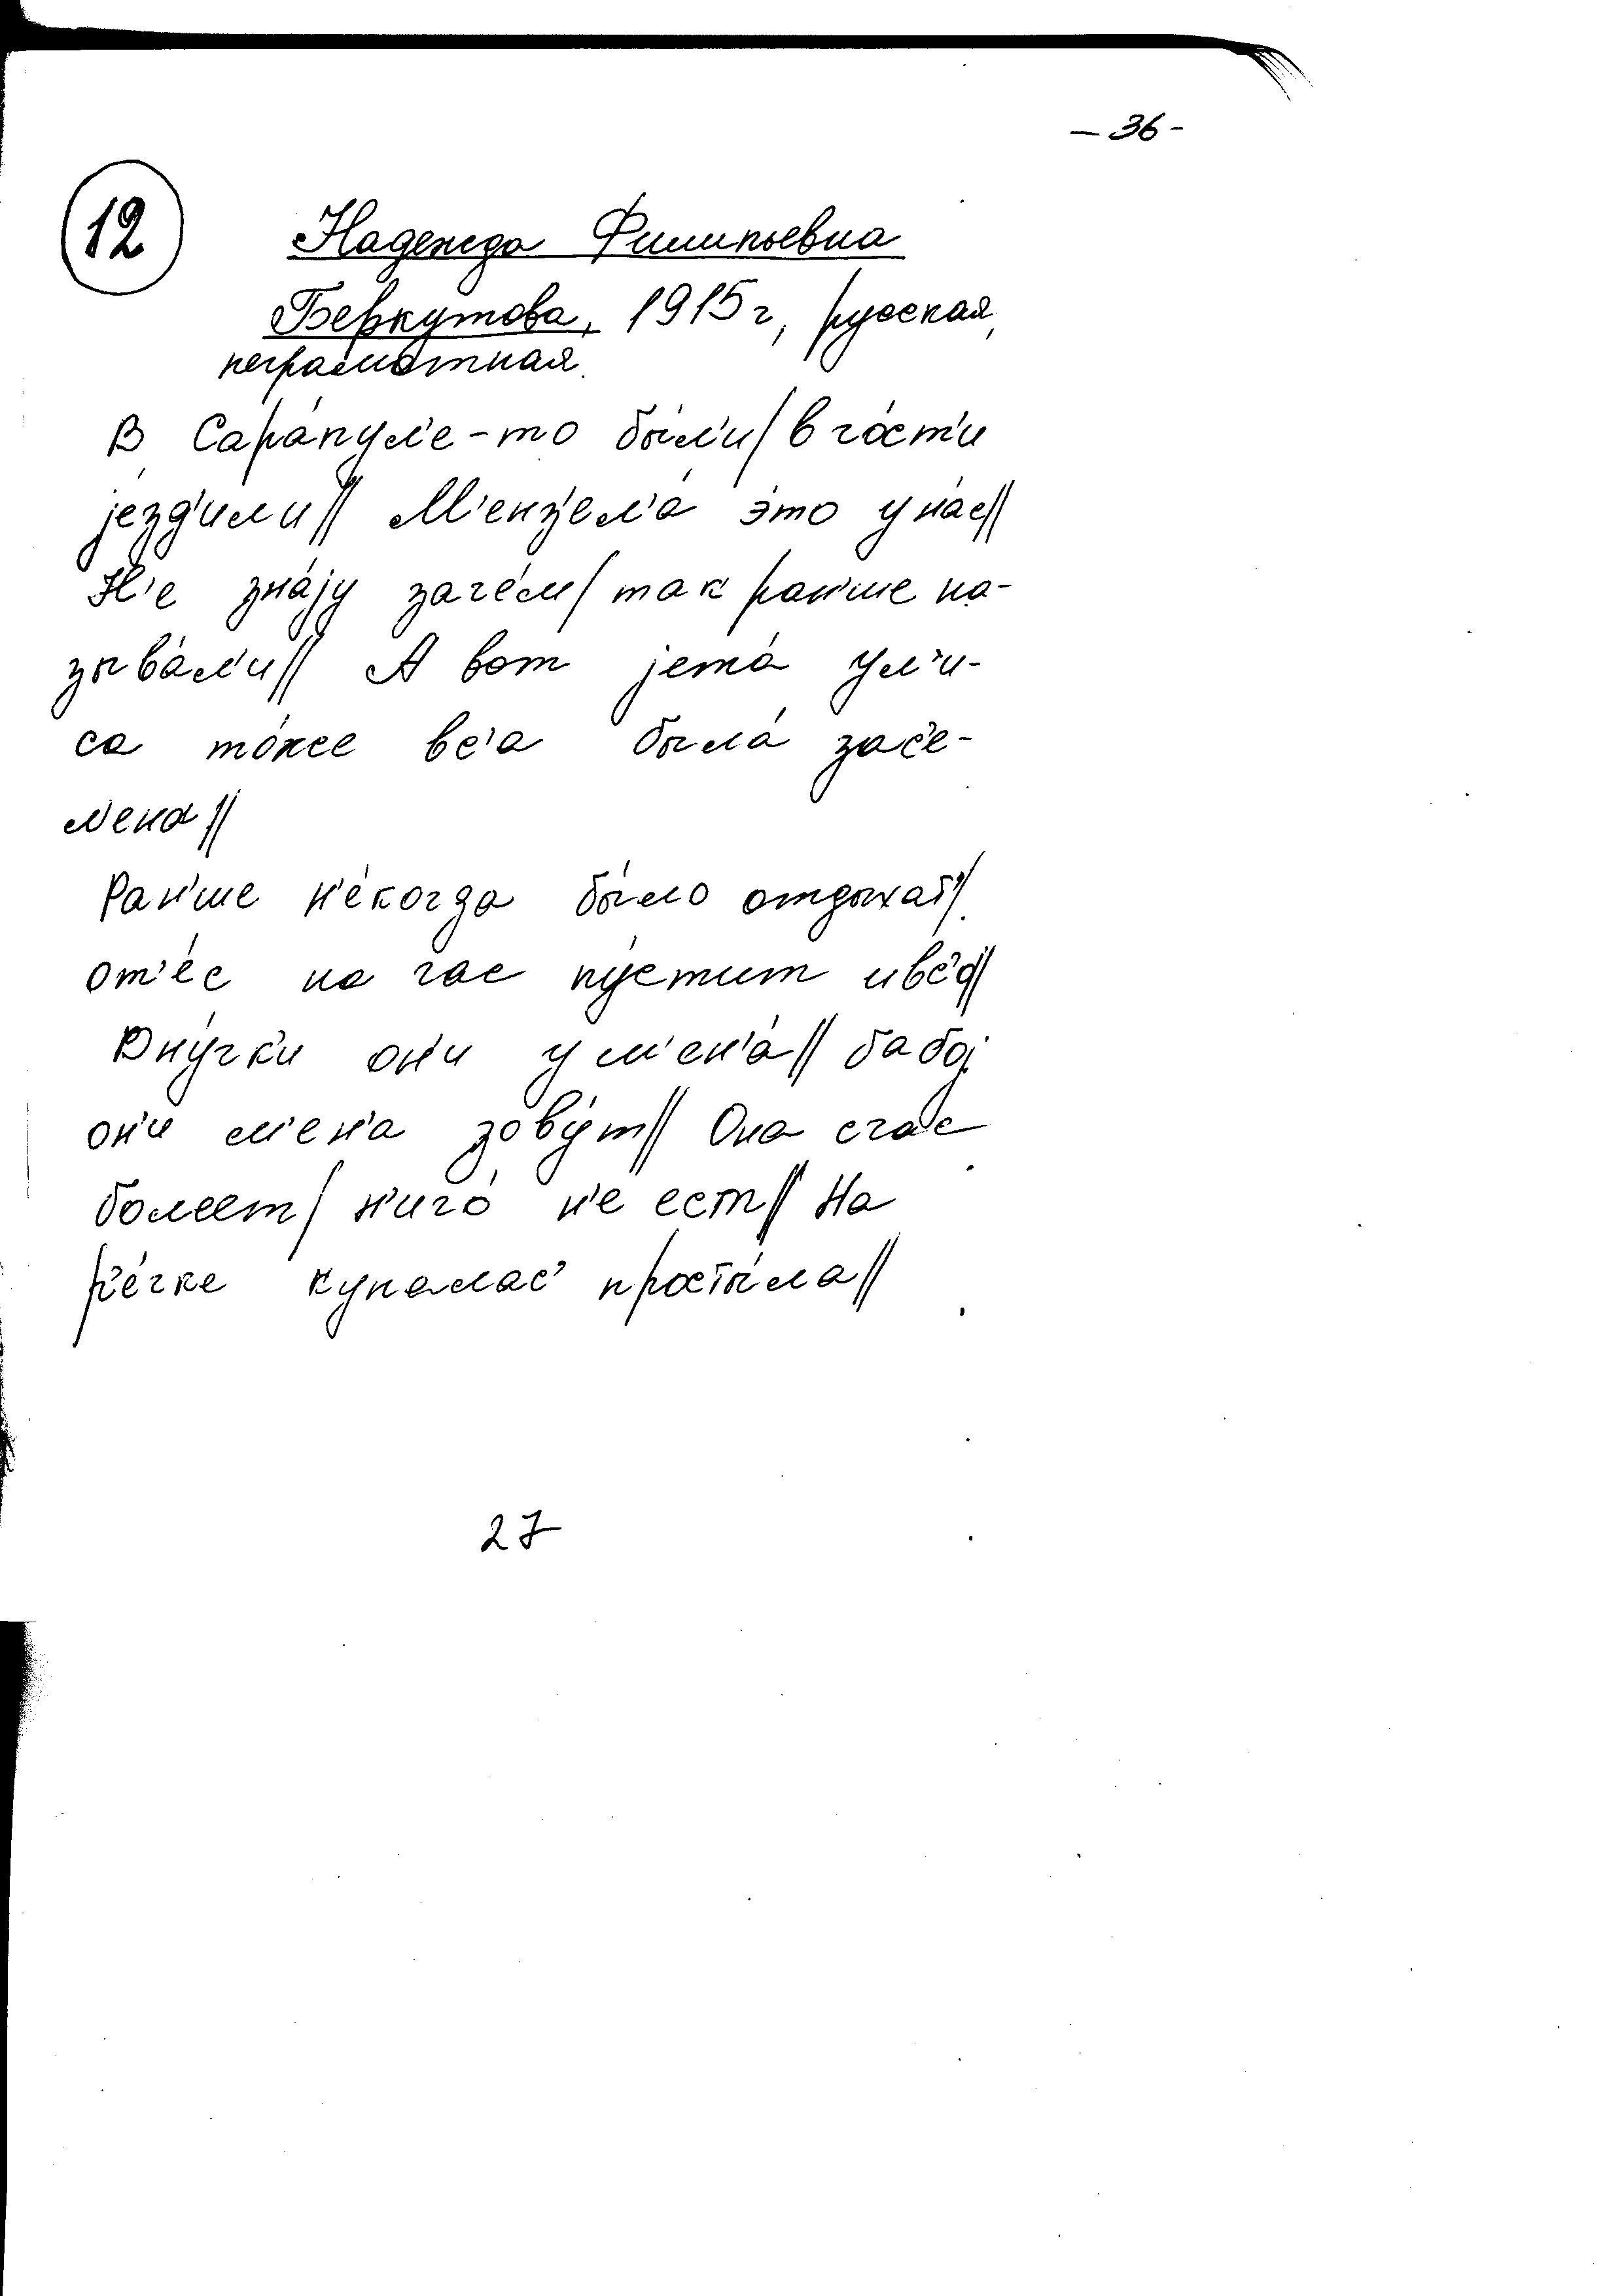 – 36 –
12
Надежда Филипьевна
Беркутова, 1915 г, русская,
неграмотная.
В Сара́пул'е-то бы́л'и / в го́ст'и
jе́зд'или // М'енз'ел'а́ э́то у на́с //
Н'е зна́jу заче́м / так ран'ше на-
зыва́л'и // А вот jета́ ул'и-
са то́же вс'а была́ зас'е-
лена //
Ран'ше н'е́когда бы́ло отдыхат' /
от'е́с на час пу́стит и вс'о //
Вну́чк'и он'и у м'ен'а́ // бабоj
он'и м'ен'а зову́т // Она счас
болеет / н'ичо́ н'е ест // На
р'е́чке купалас' просты́ла //
27